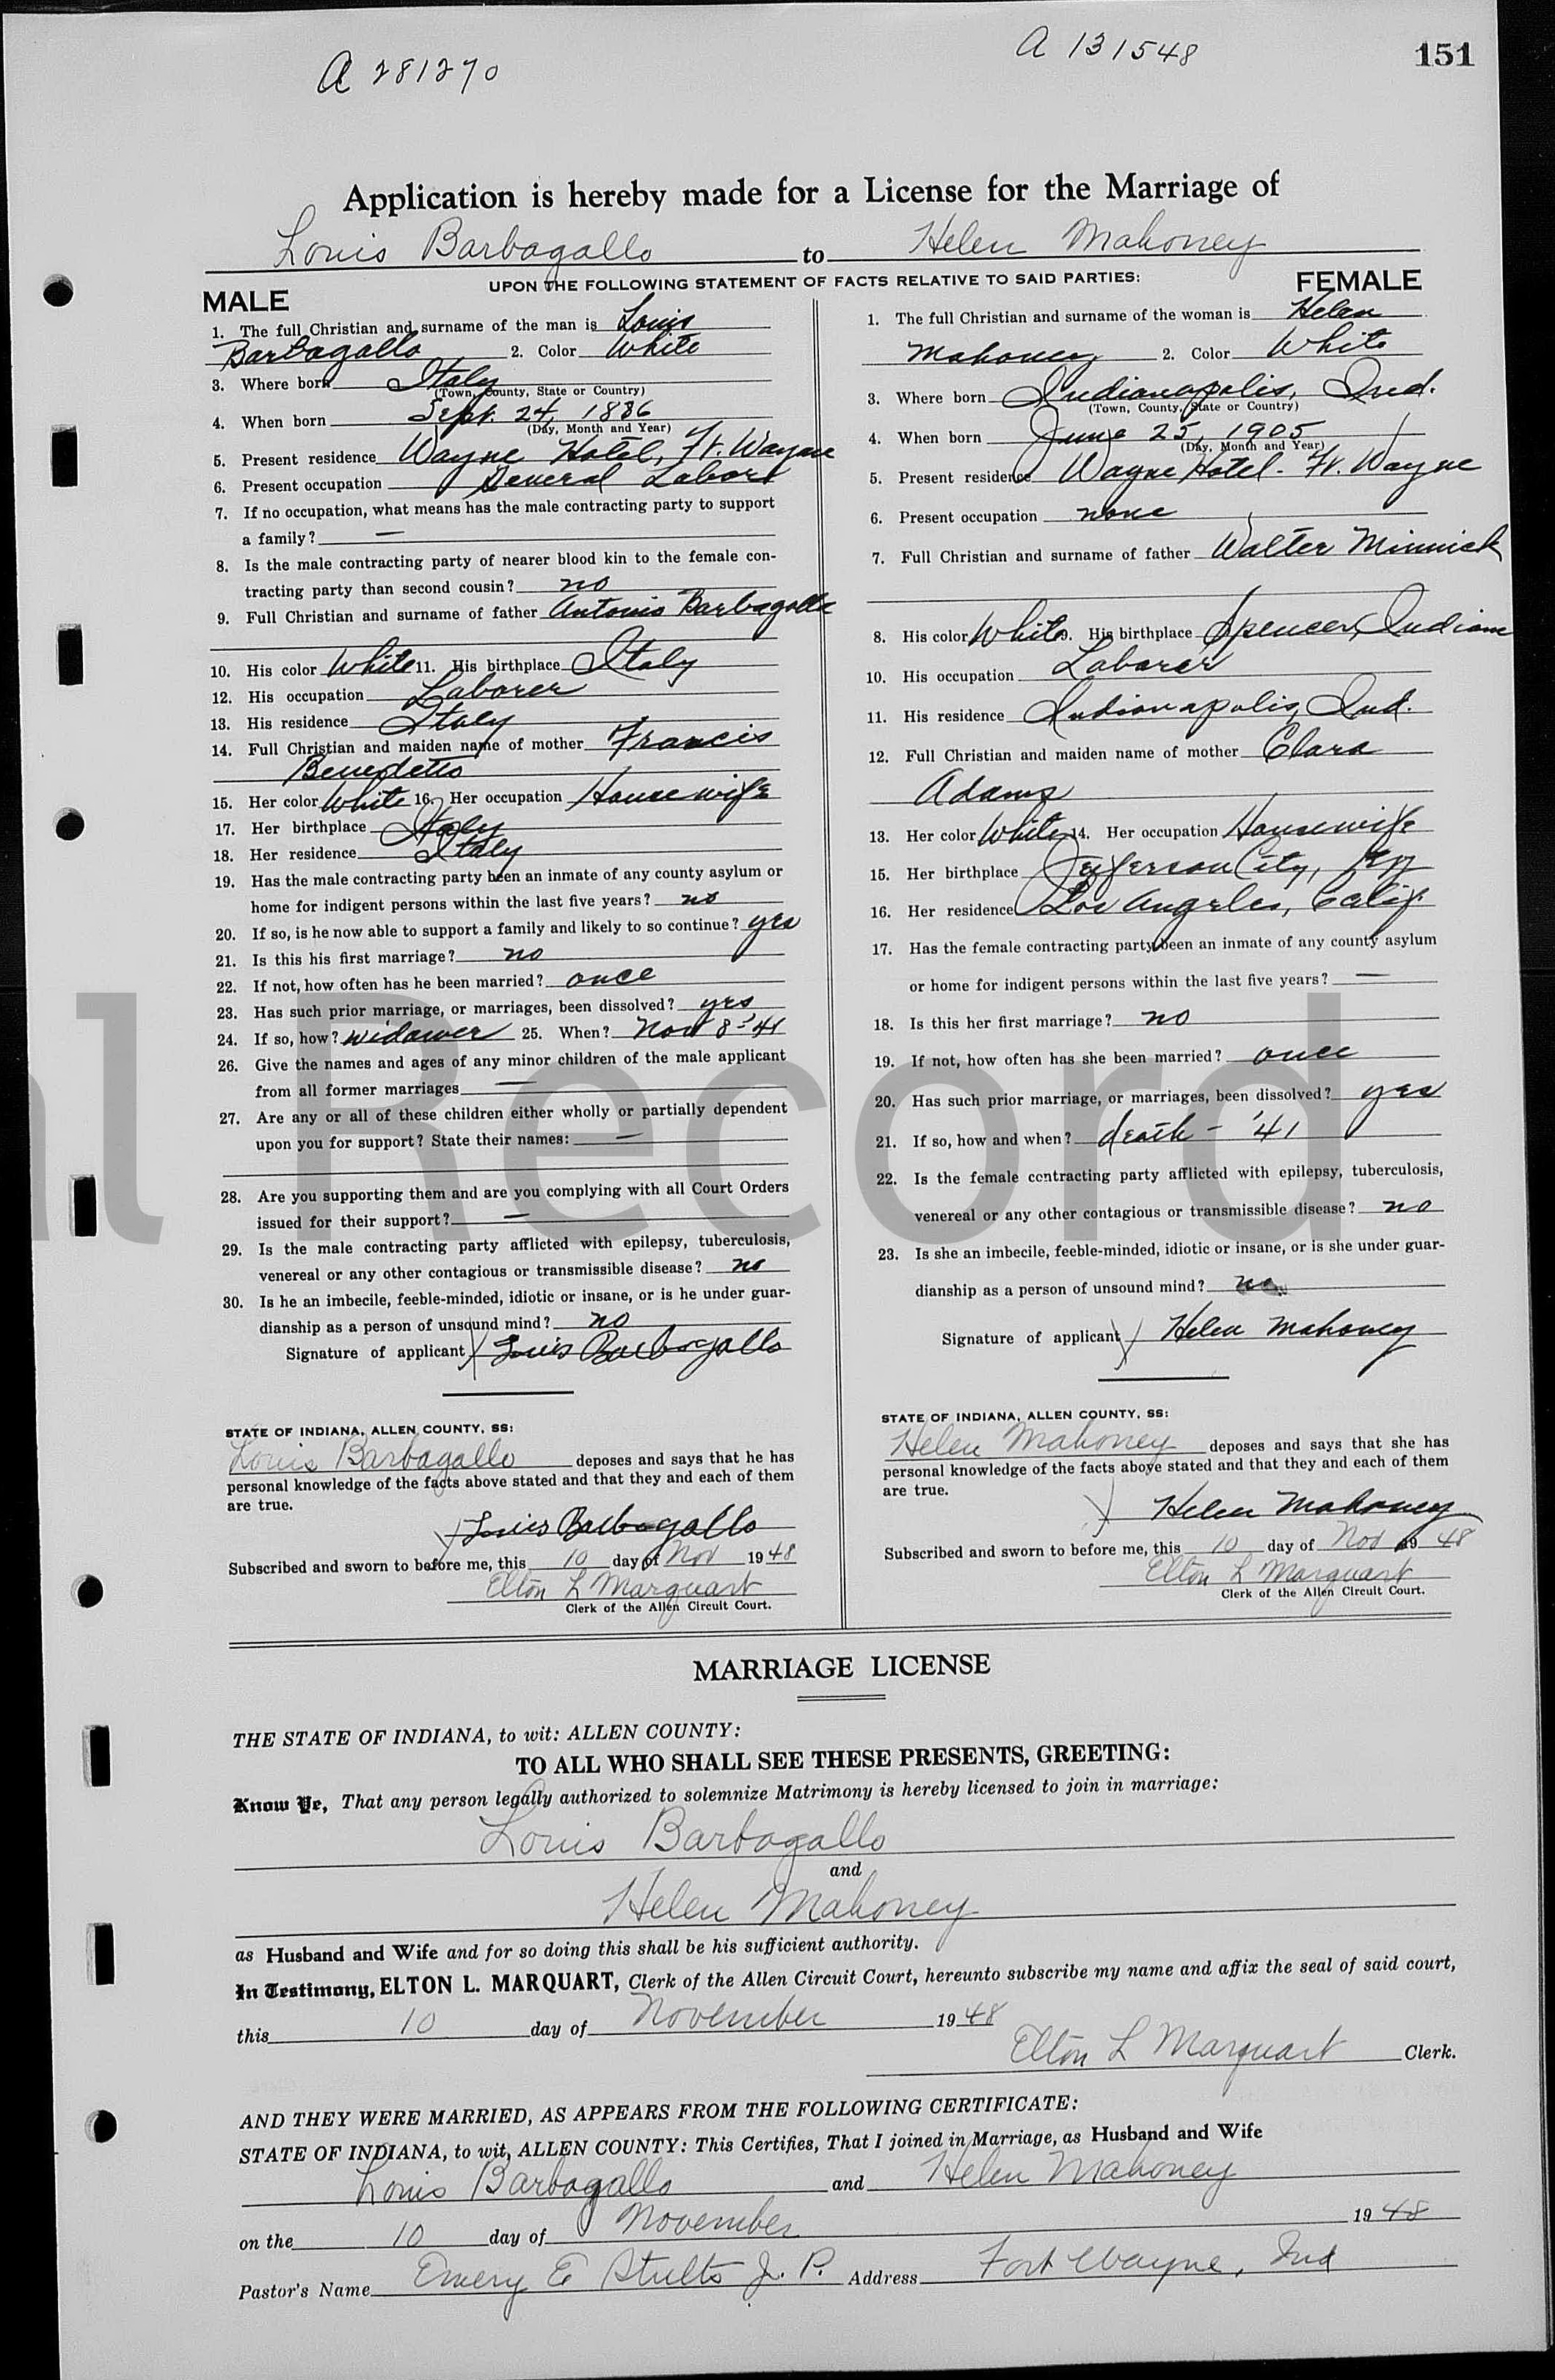 A 281270
A 131548
151
Application is hereby made for a License for the Marriage of
Louis Barbagallo to Helen Mahoney
UPON THE FOLLOWING STATEMENT OF FACTS RELATIVE TO SAID PARTIES:
MALE
1. The full Christian and surname of the man is Louis
Barbagallo 2. Color White
3. Where born Italy
(Town, County, State or Country)
4. When born Sept. 24, 1886
(Day, Month and Year)
5. Present residence Wayne Hotel, Ft. Wayne
6. Present occupation General Labor
7. If no occupation, what means has the male contracting party to support
a family? —
8. Is the male contracting party of nearer blood kin to the female con-
tracting party than second cousin? no
9. Full Christian and surname of father Antonio Barbagallo
10. His color White 11. His birthplace Italy
12. His occupation Laborer
13. His residence Italy
14. Full Christian and maiden name of mother Francis
Benedetto
15. Her color White 16. Her occupation Housewife
17. Her birthplace Italy
18. Her residence Italy
19. Has the male contracting party been an inmate of any county asylum or
home for indigent persons within the last five years? no
20. If so, is he now able to support a family and likely to so continue? yes
21. Is this his first marriage? no
22. If not, how often has he been married? once
23. Has such prior marriage, or marriages, been dissolved? yes
24. If so, how? widower 25. When? Nov 8-'41
26. Give the names and ages of any minor children of the male applicant
from all former marriages —
27. Are any or all of these children either wholly or partially dependent
upon you for support? State their names: —
28. Are you supporting them and are you complying with all Court Orders
issued for their support? —
29. Is the male contracting party afflicted with epilepsy, tuberculosis,
venereal or any other contagious or transmissible disease? no
30. Is he an imbecile, feeble-minded, idiotic or insane, or is he under guar-
dianship as a person of unsound mind? no
Signature of applicant Louis Barbagallo
STATE OF INDIANA, ALLEN COUNTY, SS:
Louis Barbagallo deposes and says that he has
personal knowledge of the facts above stated and that they and each of them
are true.
Louis Barbagallo
Subscribed and sworn to before me, this 10 day of Nov 1948
Elton L Marquart
Clerk of the Allen Circuit Court.
FEMALE
1. The full Christian and surname of the woman is Helen
Mahoney 2. Color White
3. Where born Indianapolis, Ind.
(Town, County, State or Country)
4. When born June 25, 1905
(Day, Month and Year)
5. Present residence Wayne Hotel - Ft. Wayne
6. Present occupation none
7. Full Christian and surname of father Walter Minnick
8. His color White 9. His birthplace Spencer, Indiana
10. His occupation Laborer
11. His residence Indianapolis, Ind.
12. Full Christian and maiden name of mother Clara
Adams
13. Her color White 14. Her occupation Housewife
15. Her birthplace Jefferson City,
16. Her residence Los Angeles, Calif.
17. Has the female contracting party been an inmate of any county asylum
or home for indigent persons within the last five years? —
18. Is this her first marriage? no
19. If not, how often has she been married? once
20. Has such prior marriage, or marriages, been dissolved? yes
21. If so, how and when? death - '41
22. Is the female contracting party afflicted with epilepsy, tuberculosis,
venereal or any other contagious or transmissible disease? no
23. Is she an imbecile, feeble-minded, idiotic or insane, or is she under guar-
dianship as a person of unsound mind? no
Signature of applicant Helen Mahoney
STATE OF INDIANA, ALLEN COUNTY, SS:
Helen Mahoney deposes and says that she has
personal knowledge of the facts above stated and that they and each of them
are true.
Helen Mahoney
Subscribed and sworn to before me, this 10 day of Nov 1948
Elton L Marquart
Clerk of the Allen Circuit Court.
l Record
MARRIAGE LICENSE
THE STATE OF INDIANA, to wit: ALLEN COUNTY:
TO ALL WHO SHALL SEE THESE PRESENTS, GREETING:
Know Ye, That any person legally authorized to solemnize Matrimony is hereby licensed to join in marriage:
Louis Barbagallo
and
Helen Mahoney
as Husband and Wife and for so doing this shall be his sufficient authority.
In Testimony, ELTON L. MARQUART, Clerk of the Allen Circuit Court, hereunto subscribe my name and affix the seal of said court,
this 10 day of November 1948
Elton L Marquart Clerk.
AND THEY WERE MARRIED, AS APPEARS FROM THE FOLLOWING CERTIFICATE:
STATE OF INDIANA, to wit, ALLEN COUNTY: This Certifies, That I joined in Marriage, as Husband and Wife
Louis Barbagallo and Helen Mahoney
on the 10 day of November 1948
Pastor's Name Emery E Stults J. P. Address Fort Wayne, Ind